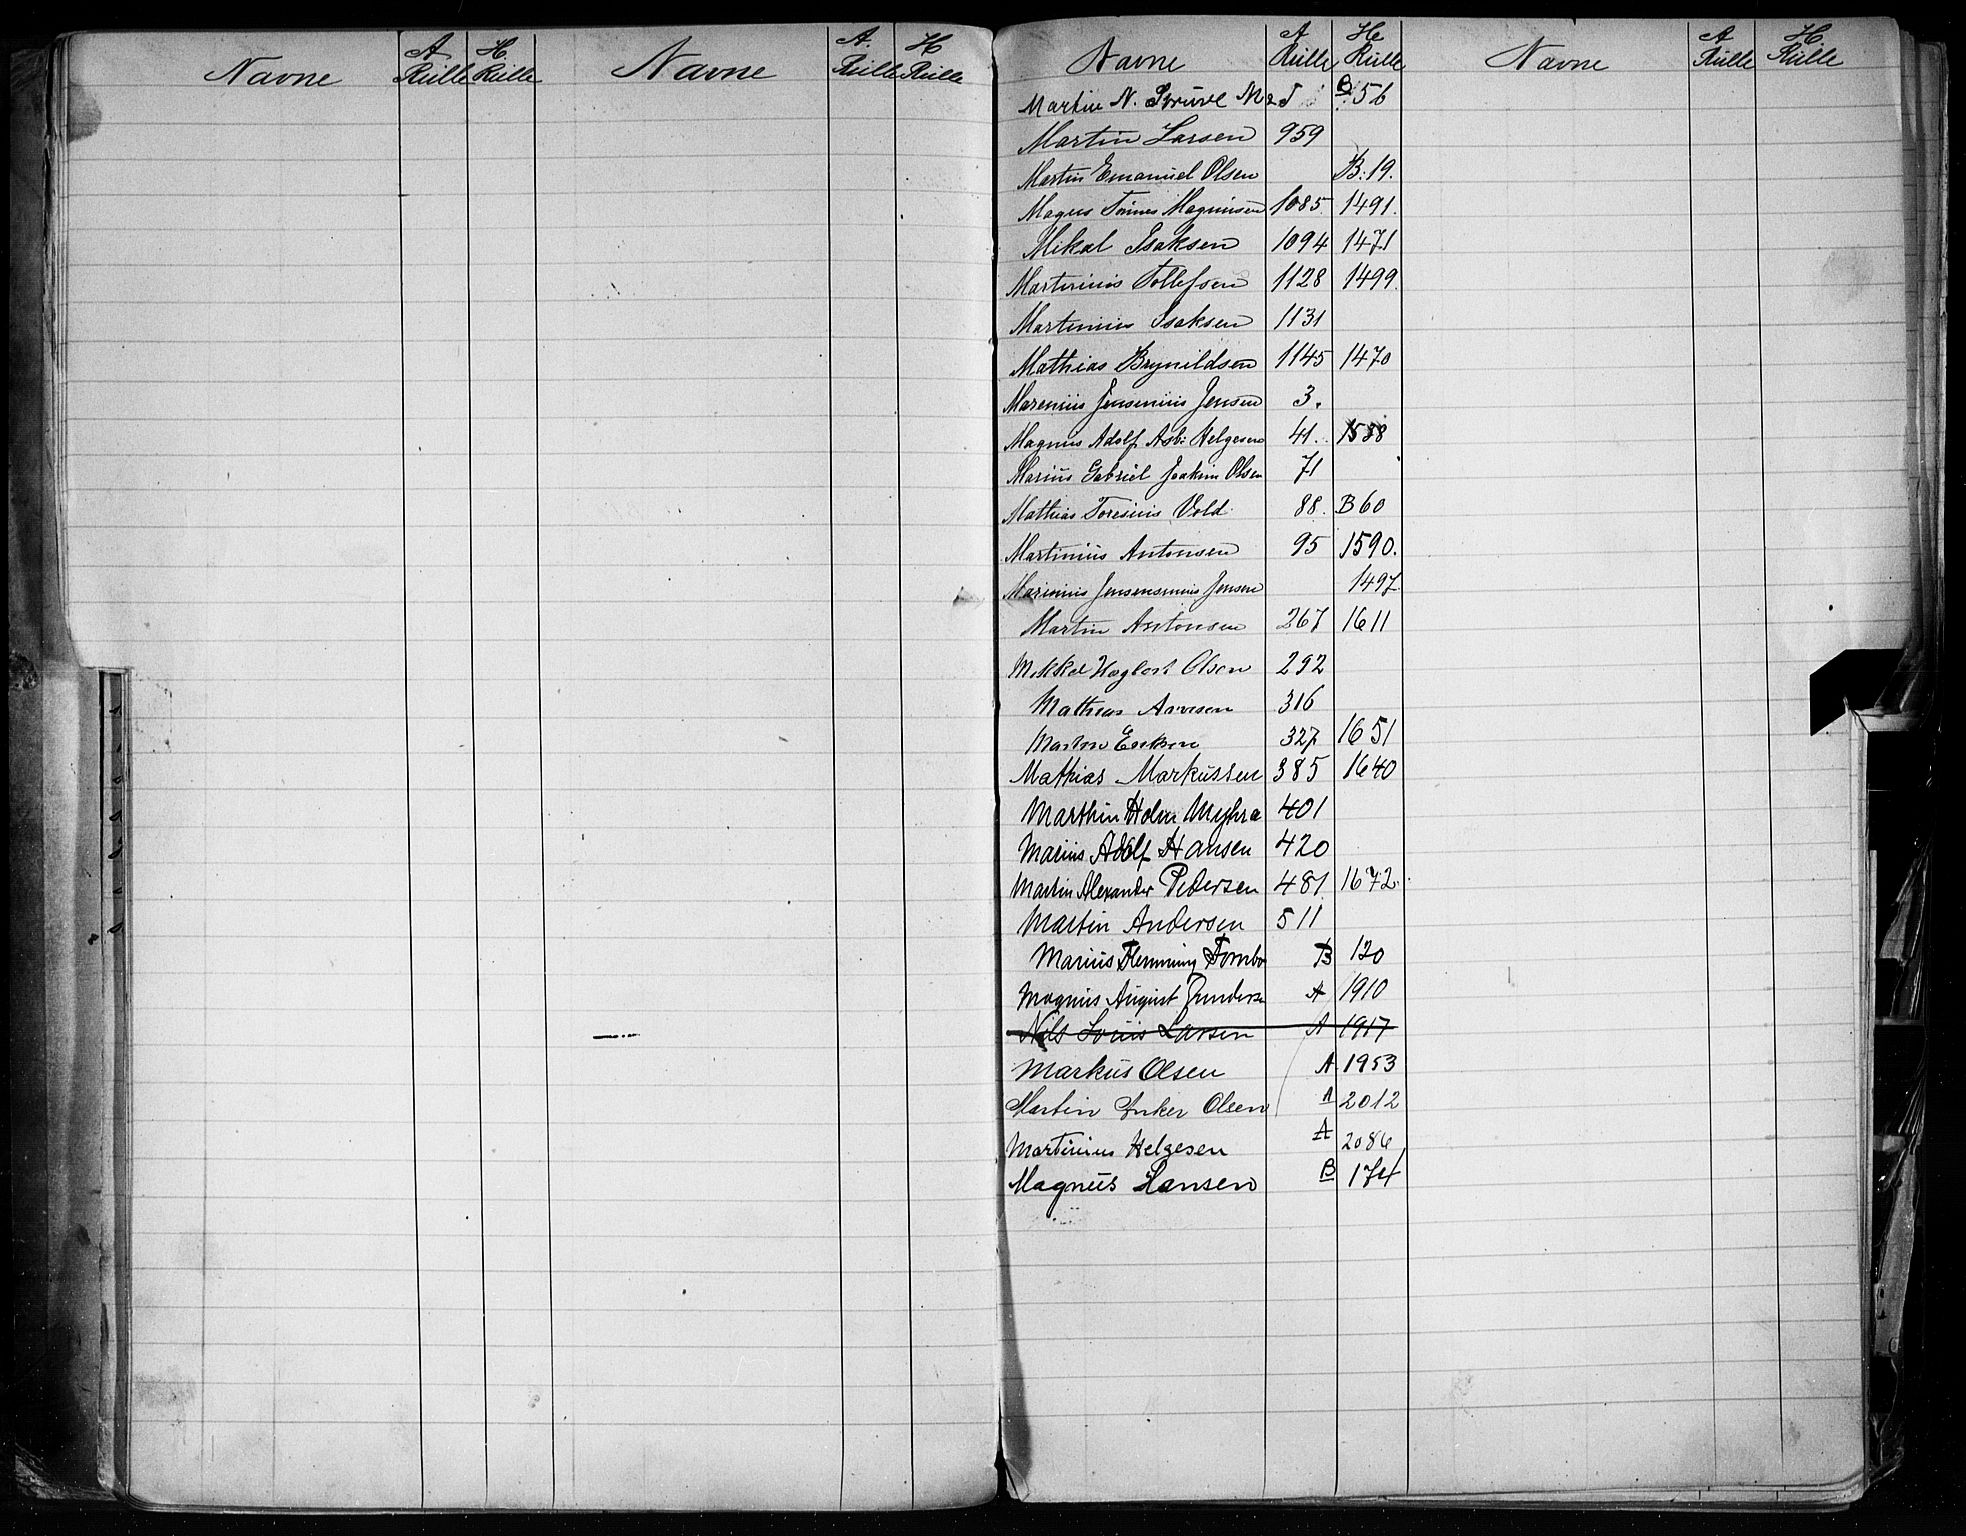 Navne A Rulle H Rulle Navne A. Rulle H Rulle
Navne A Rulle H Rulle Navne A Rulle H Rulle
Martin N. Struve 56
Martin Larsen 959
Martin Emanuel Olsen B. 19.
Magnus Tønnes Magnusen 1085. 1491.
Mikal Isaksen 1094 1471
Martinius Tollefsen 1128 1499.
Martinius Isaksen 1131
Mathias Brynildsen 1145 1470
Marenius Jensenius Jensen 3.
Magnus Adolf Asb: Helgesen 41. 1588
Marius Gabriel Joakim Olsen 71
Mathias Toresius Vold 88. B 60
Martinius Antonsen 95 1590.
Marinius Jensensinius Jensen 1497
Martin Antonsen 267 1611
Mikkel Hagbart Olsen 292
Mathias Arvesen 316
Martin Eriksen 327 1651
Mathias Markussen 385 1640
Marthin Holm Myhra 401
Marius Adolf Hansen 420
Martin Alexander Pedersen 481 1672.
Martin Andersen 511
Marius Flemming Tombo B 120
Magnus August Gunderse A 1910
Nils Louis Larsen A 1917
Markus Olsen A 1953
Martin Inker Olsen A 2012
Martinius Helgesen A 2086
Magnus Hansen B 174